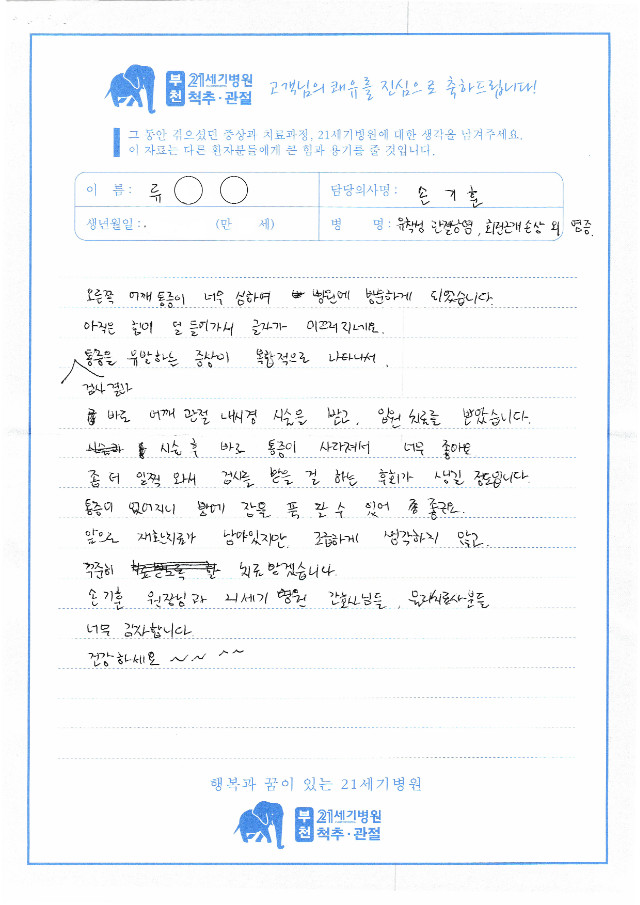 부천 21세기병원 척추·관절 고객님의 쾌유를 진심으로 축하드립니다!
그 동안 겪으셨던 증상과 치료과정, 21세기병원에 대한 생각을 남겨주세요.
이 자료는 다른 환자분들에게 큰 힘과 용기를 줄 것입니다.
이 름 : 류 ○ ○ 담당의사명 : 손 기 훈
생년월일 : . (만 세) 병 명 : 유착성 관절낭염, 회전근개 손상 외 염증.
오른쪽 어깨 통증이 너무 심하여 병원에 방문하게 되었습니다.
아직은 힘이 덜 들어가서 글자가 이끄러지네요.
통증을 유발하는 증상이 복합적으로 나타나서,
검사결과
바로 어깨 관절 내시경 시술을 받고, 입원 치료를 받았습니다.
시술 후 바로 통증이 사라져서 너무 좋아요
좀 더 일찍 와서 검사를 받을 걸 하는 후회가 생길 정도입니다.
통증이 없어지니 밤에 잠을 푹 잘 수 있어 좋구요.
앞으로 재활치료가 남아있지만. 조급하게 생각하지 않고.
꾸준히 치료 받겠습니다.
손기훈 원장님과 21세기 병원 간호사님들, 물리치료사분들
너무 감사합니다
건강하세요 ~ ~ ^^
행복과 꿈이 있는 21세기병원
부천 21세기병원 척추·관절